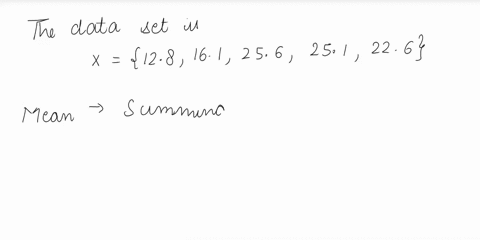 The data set is
x = {12.8, 16.1, 25.6, 25.1, 22.6}
Mean → Summing